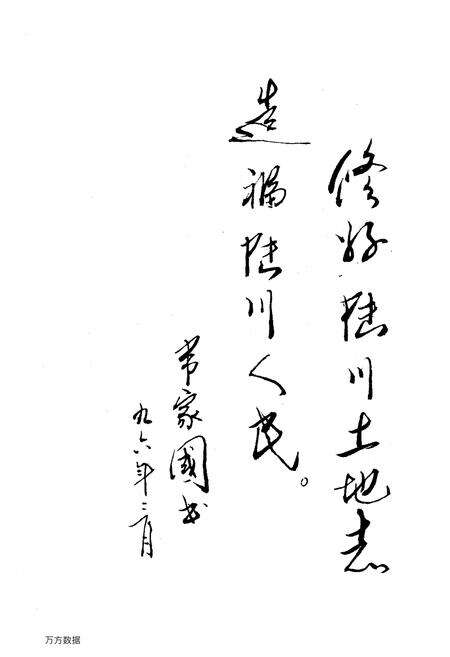 修好陆川土地志
造福陆川人民。
常家国书
九六年三月
万方数据